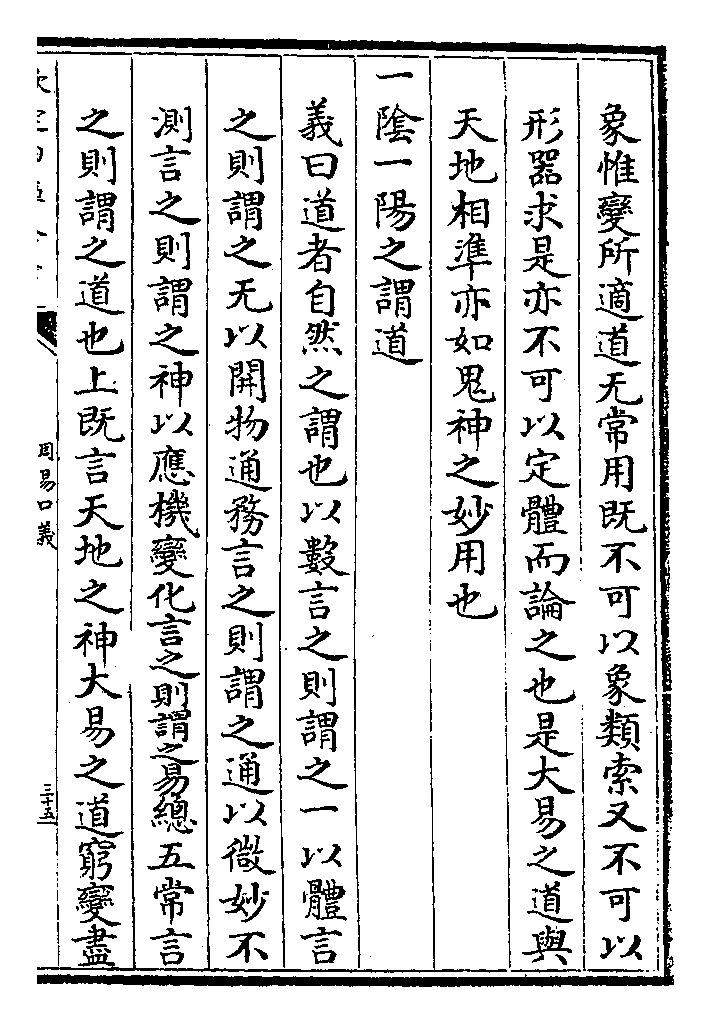 象惟變所適道无常用既不可以象類索又不可以
形器求是亦不可以定體而論之也是大易之道與
天地相準亦如鬼神之妙用也
一陰一陽之謂道
義曰道者自然之謂也以數言之則謂之一以體言
之則謂之无以開物通務言之則謂之通以微妙不
測言之則謂之神以應機變化言之則謂之易總五常言
之則謂之道也上既言天地之神大易之道窮變盡
周易口義
三十五